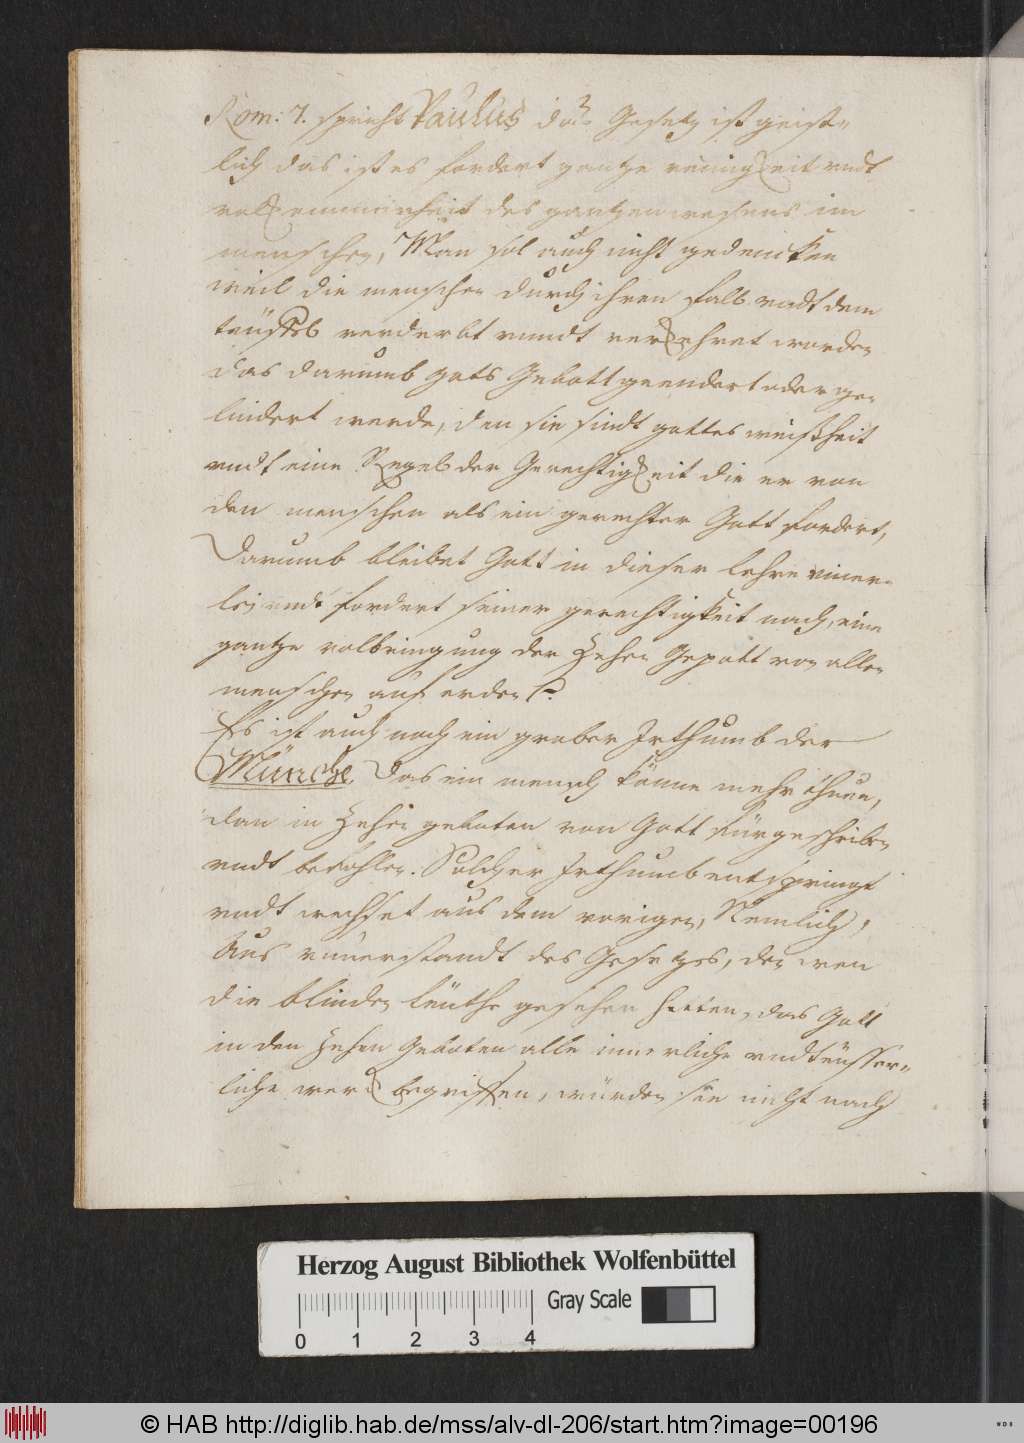 Rom: 7. spricht Paulus das Gesetz ist geist-
lich das ist es fordert gantze reinigkeit undt
volkommenheit des gantzen wesens im
menschen, Man sol auch nicht gedencken
weil die menschen durch ihren fall undt dem
teüffel verderbt unndt verkehret worden
das darumb gots Gebott geendert oder ge-
lindert werde, den sie sindt gottes weißheit
undt eine Regel der Gerechtigkeit die er von
den menschen als ein gerechter Gott fordert,
Darumb bleibet Gott in dieser lehre einer-
lej und fordert seiner gerechtigkeit nach, eine
gantze volbringung der Zehen Gepott von allen
menschen auf erden
Es ist auch noch ein grober Irthumb der
Münche. Das ein mensch könne mehr thuen,
dan in Zehen geboten von Gott fürgeschriben
undt befohlen. Solcher Irthumb entspringt
undt wechset aus dem vorigen, Nemlich,
Aus unverstandt des Gesetzes, den wen
die blinden leüthe gesehen hetten, das Gott
in den Zehen Geboten alle innerliche undt eüsser-
liche werck begriffen, würden sie nicht nach
Herzog August Bibliothek Wolfenbüttel
Gray Scale
0 1 2 3 4
© HAB http://diglib.hab.de/mss/alv-dl-206/start.htm?image=00196